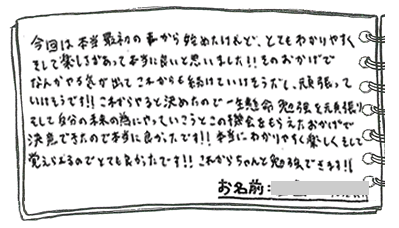 今回は本当最初の事から始めたけれど、とてもわかりやすく
そして楽しさがあって本当に良いと思いました!! そのおかげで
なんかやる気が出てこれからも続けていけそうだし、頑張って
いけそうです!! これからやると決めたので一生懸命 勉強を頑張り
そして自分の未来の為にやっていこうとこの機会をもらえたおかげで
決意できたので本当に良かったです!! 本当にわかりやすく楽しくそして
覚えられるのでとても良かったです!! これからちゃんと勉強できます!!
お名前: